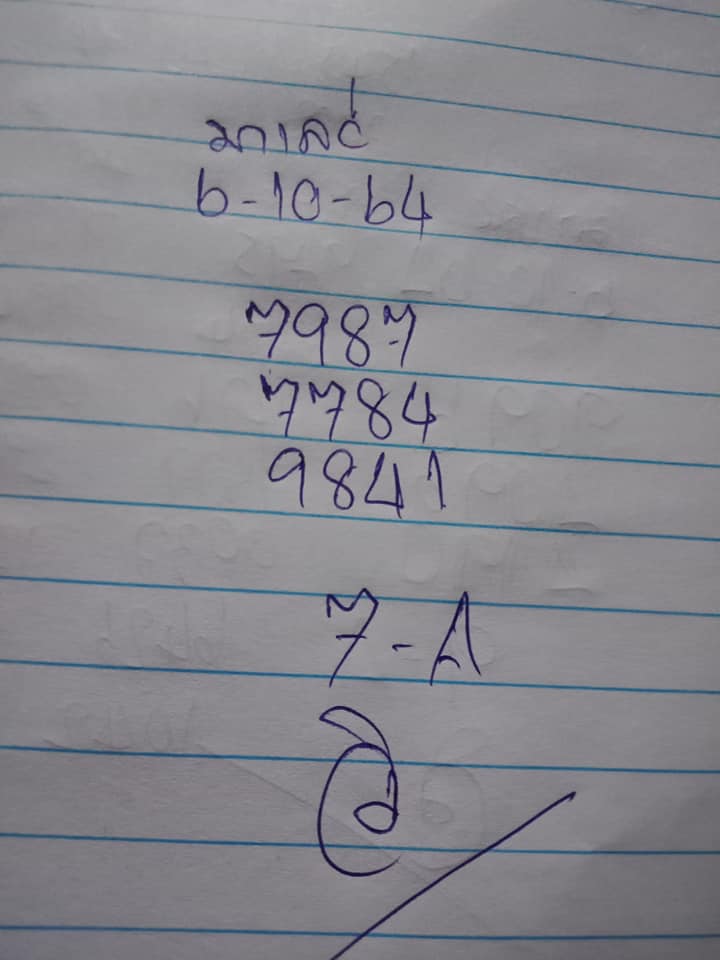 มาเลย์
6-10-64
7987
7784
9841
7-A